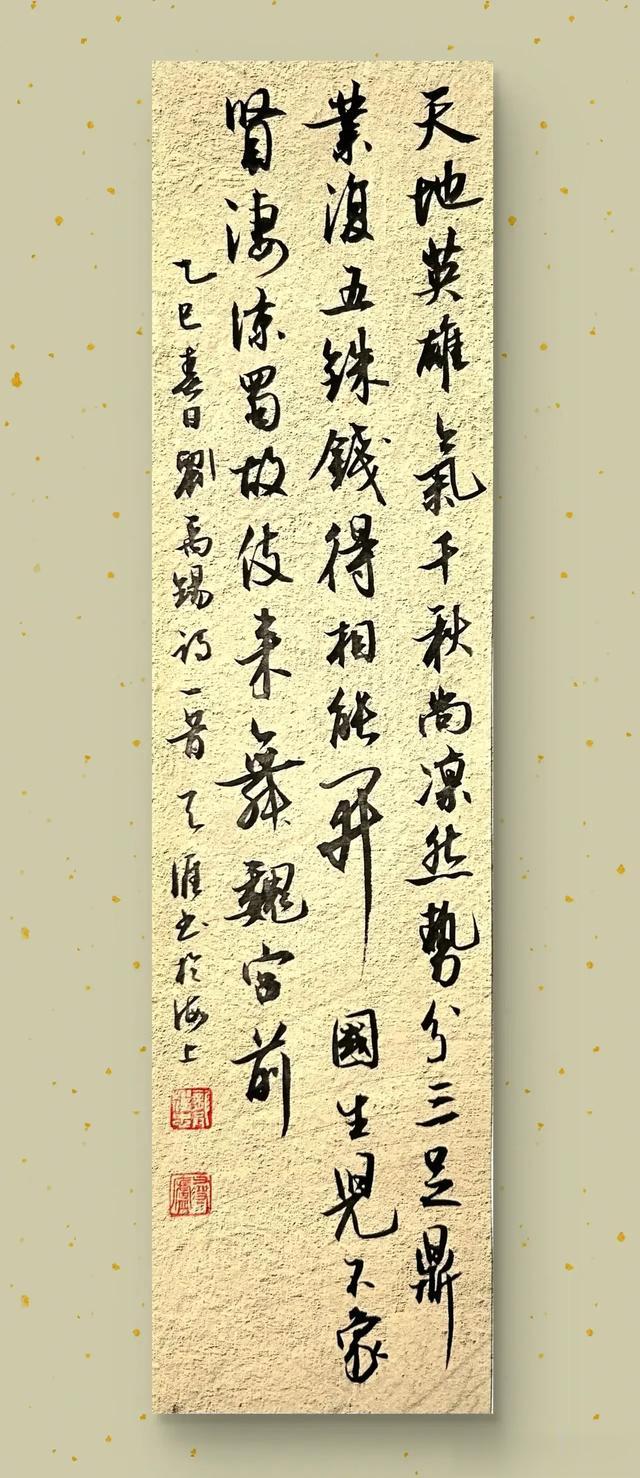 天地英雄氣千秋尚凛然勢分三足鼎
業復五銖錢得相能開國生兒不象
賢淒涼蜀故伎來舞魏宮前
乙巳春日劉禹錫詩一首天涯书於海上